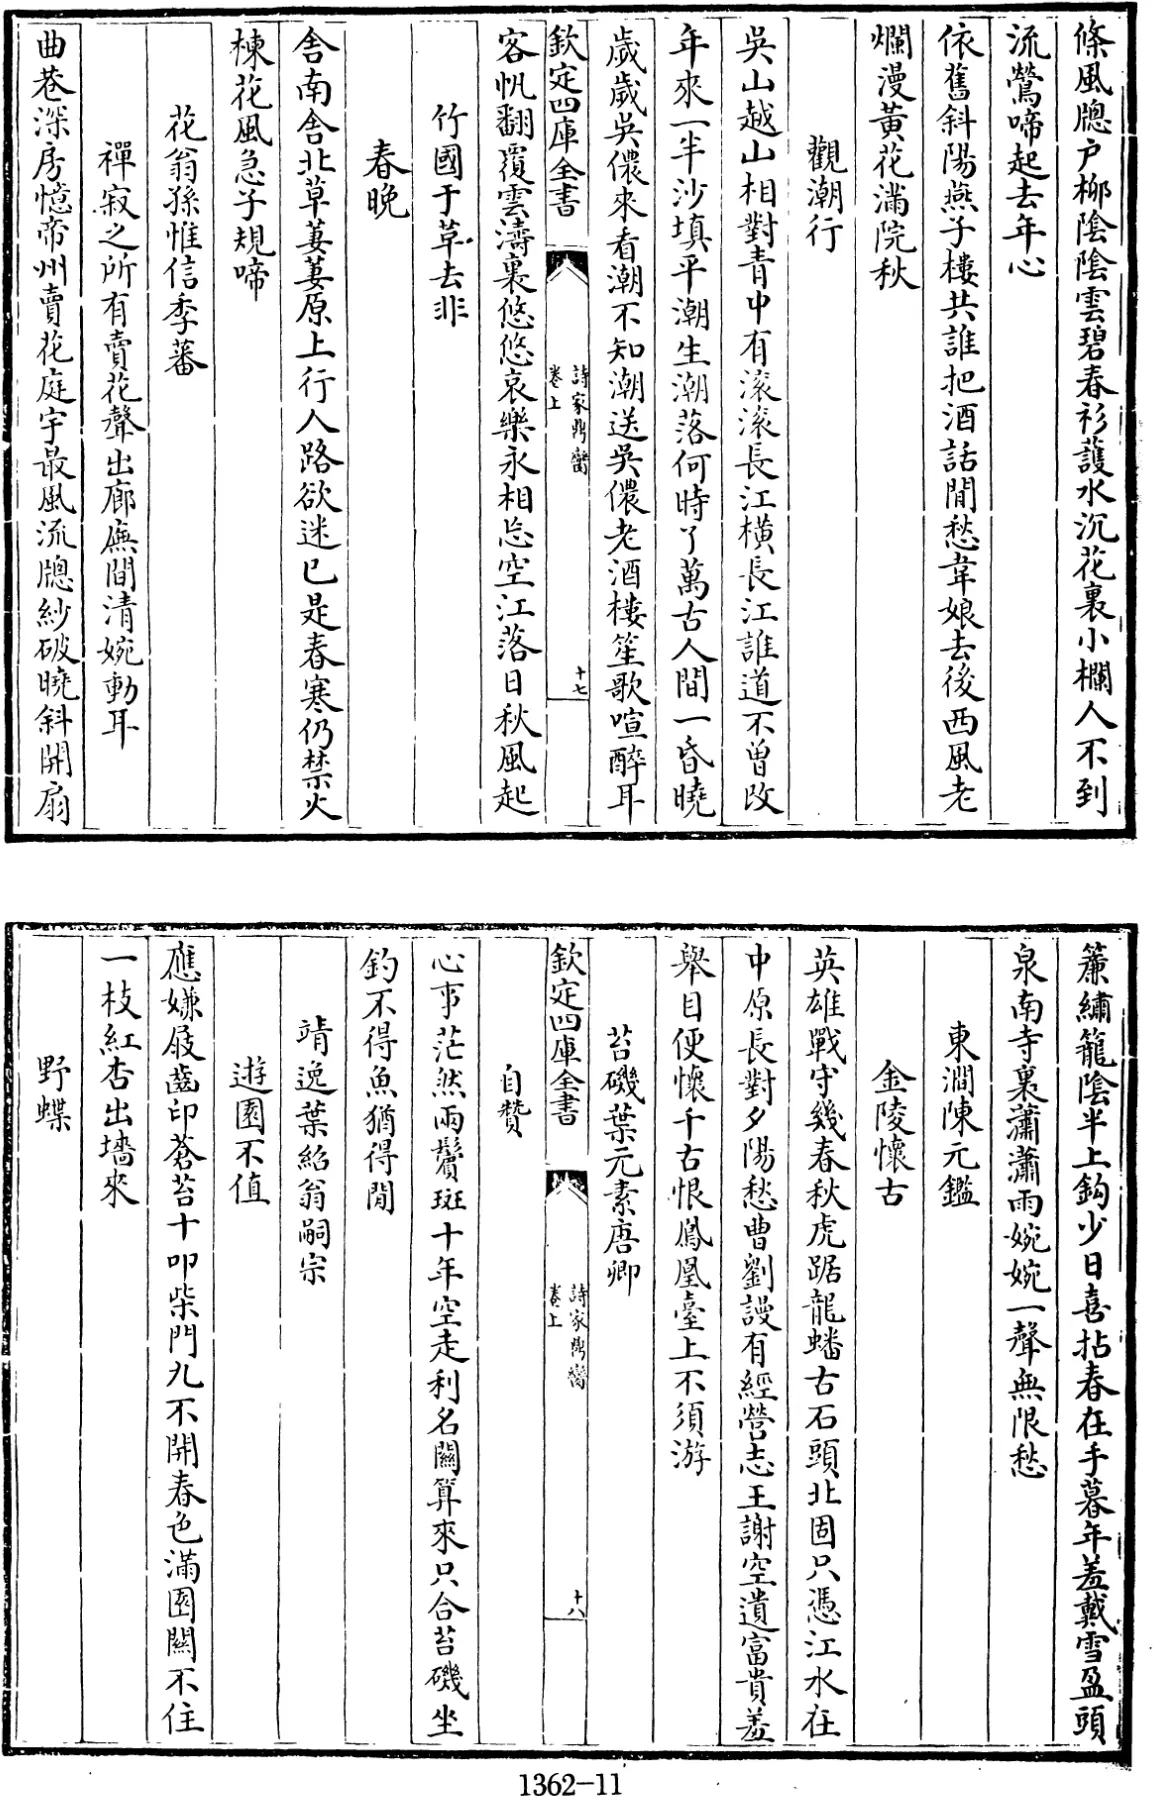 條風牕户柳陰陰雲碧春衫護水沉花裏小欄人不到
流鶯啼起去年心
依舊斜陽燕子樓共誰把酒話閒愁韋娘去後西風老
爛漫黃花滿院秋
觀潮行
吳山越山相對青中有滚滚長江横長江誰道不曾改
年來一半沙填平潮生潮落何時了萬古人間一昏曉
歲歲吳儂來看潮不知潮送吳儂老酒樓笙歌喧醉耳
欽定四庫全書
詩家鼎臠
卷上
十七
客帆翻覆雲濤裏悠悠哀樂永相忘空江落日秋風起
竹國于草去非
春晚
舍南舍北草萋萋原上行人路欲迷已是春寒仍禁火
楝花風急子規啼
花翁孫惟信季蕃
禪寂之所有賣花聲出廊廡間清婉動耳
曲巷深房憶帝州賣花庭宇最風流牕紗破曉斜開扇
簾繡籠陰半上鈎少日喜拈春在手暮年羞戴雪盈頭
泉南寺裏瀟瀟雨婉婉一聲無限愁
東澗陳元鑑
金陵懷古
英雄戰守幾春秋虎踞龍蟠古石頭北固只憑江水在
中原長對夕陽愁曹劉謾有經營志王謝空遺富貴羞
舉目便懷千古恨鳳凰臺上不須游
苔磯葉元素唐卿
欽定四庫全書
詩家鼎臠
卷上
十八
自贊
心事茫然兩鬢斑十年空走利名關算來只合苔磯坐
釣不得魚猶得閒
靖逸葉紹翁嗣宗
遊園不值
應嫌屐齒印蒼苔十叩柴門九不開春色滿園關不住
一枝紅杏出墻來
野蝶
1362-11